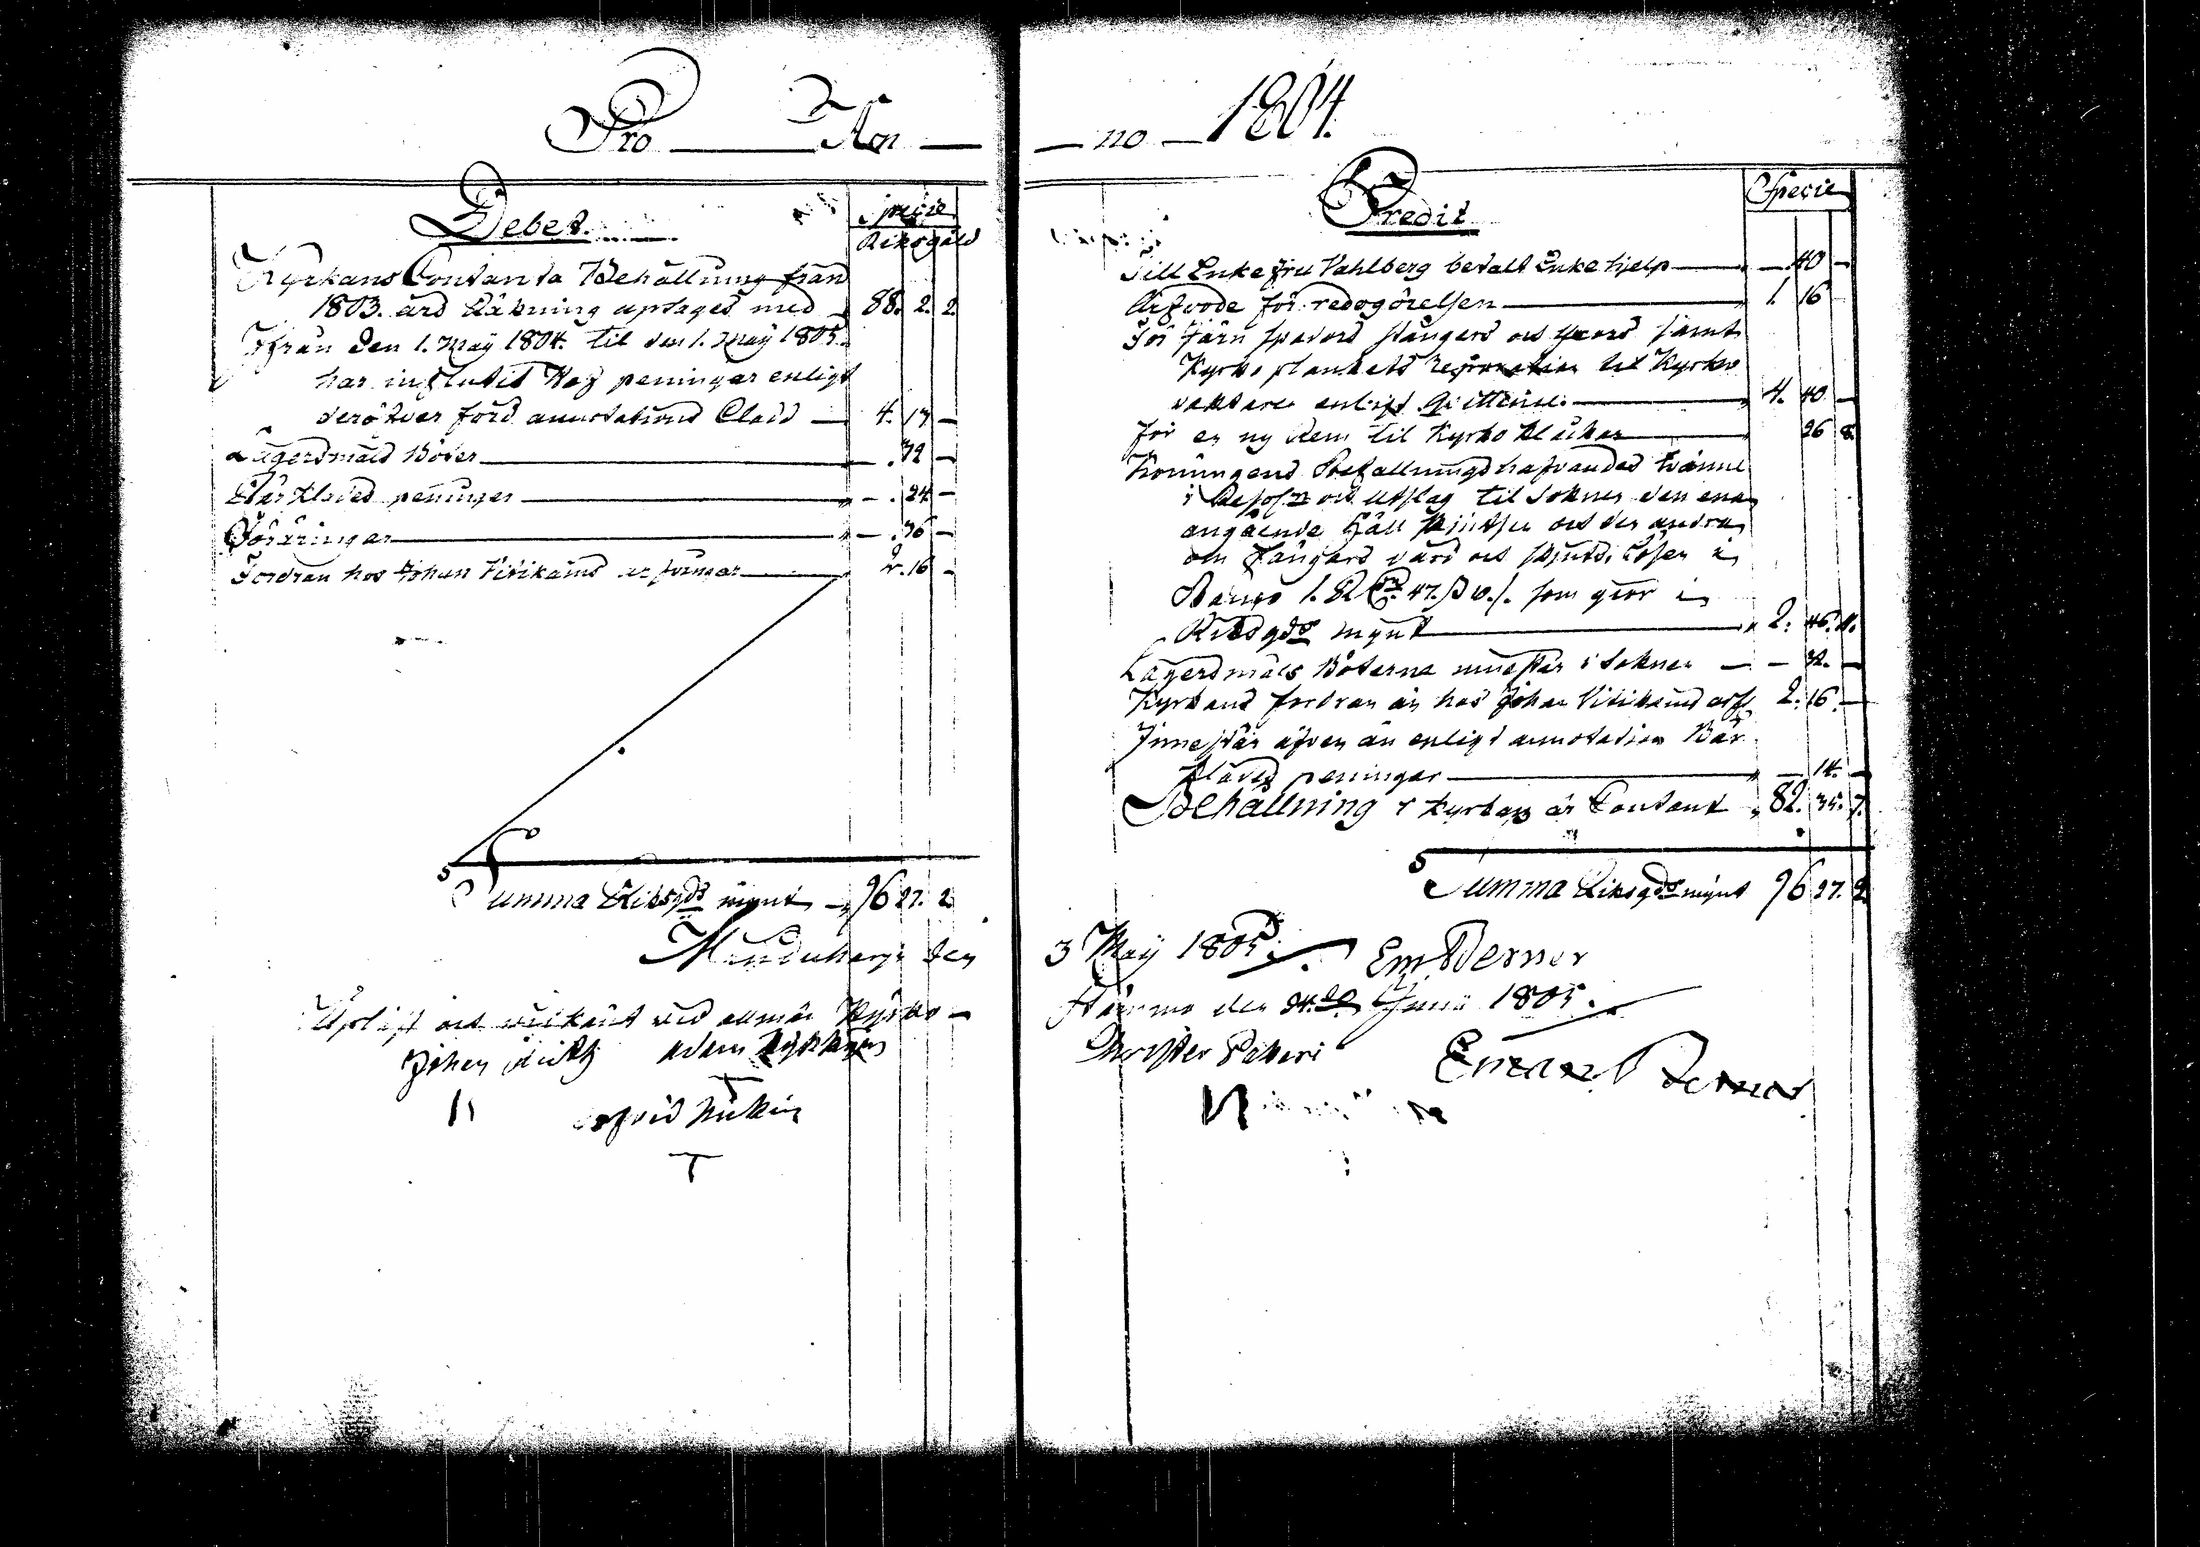 Pro Anno 1804.
Debet.
Specie
Riksgäld
Kyrkans Contanta Behållning från
1803. års Räkning uptages med 88. 2. 2.
Ifrån den 1. Maÿ 1804. til den 1. Maÿ 1805.
har influtit Håf peningar enligt
deröfver förd annotations Clad 4. 13 —
Lägersmåls Böter — . 32 —
Bårklädes peningar — . 24 —
Föräringar — . 36 —
Fordran hos Johan arfvingar 2. 16 —
Summa Riksgds mynt 96 27. 2
den
Uplÿst och vid allmän Kyrko-
Johan
Credit
Specie
Till Enkefru Vahlberg betalt Enkehjelp — 40 —
Arfvode för redogörelsen 1. 16
För järn spadars stängers och samt
Kyrko plankets reparation til Kyrko
vaktaren enligt Qvittence 4. 40 —
För en ny Rem til Kyrko Klåckan 26 8.
Konungens Befallningshafvandes tvänne
Resol:n och Utslag til Soknen den ena
angående Håll Skjutsen och den andra
om Fångars vård och skjuts, lösen i
Banco 1. Rd 47. s som giör i
Riksgds mynt 2. 46. 11.
Lägersmåls Böterna innestår i Soknen — 32. —
Kyrkans fordran än hos Johan arfv. 2. 16. —
Innestår äfven än enligt annotation Bår
klädes peningar — 14. —
Behållning i Kyrkan är Contant 82. 35. 7.
Summa Riksgds mynt 96 27. 2
3 Maÿ 1805. Em Berner
Stämma den 24:de Junii 1805.
Christer
Emanuel Berner